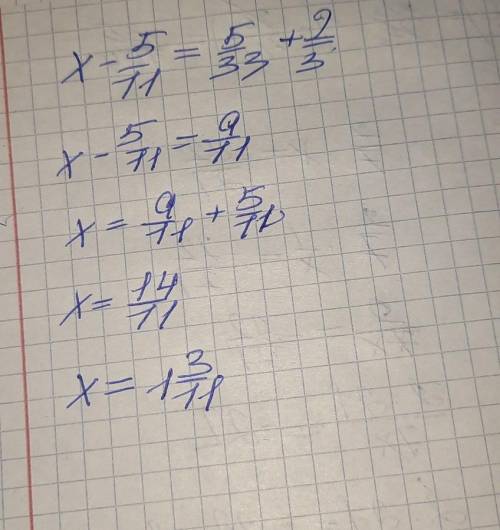 x - 5/11 = 5/33 + 2/3
x - 5/11 = 9/11
x = 9/11 + 5/11
x = 14/11
x = 1 3/11